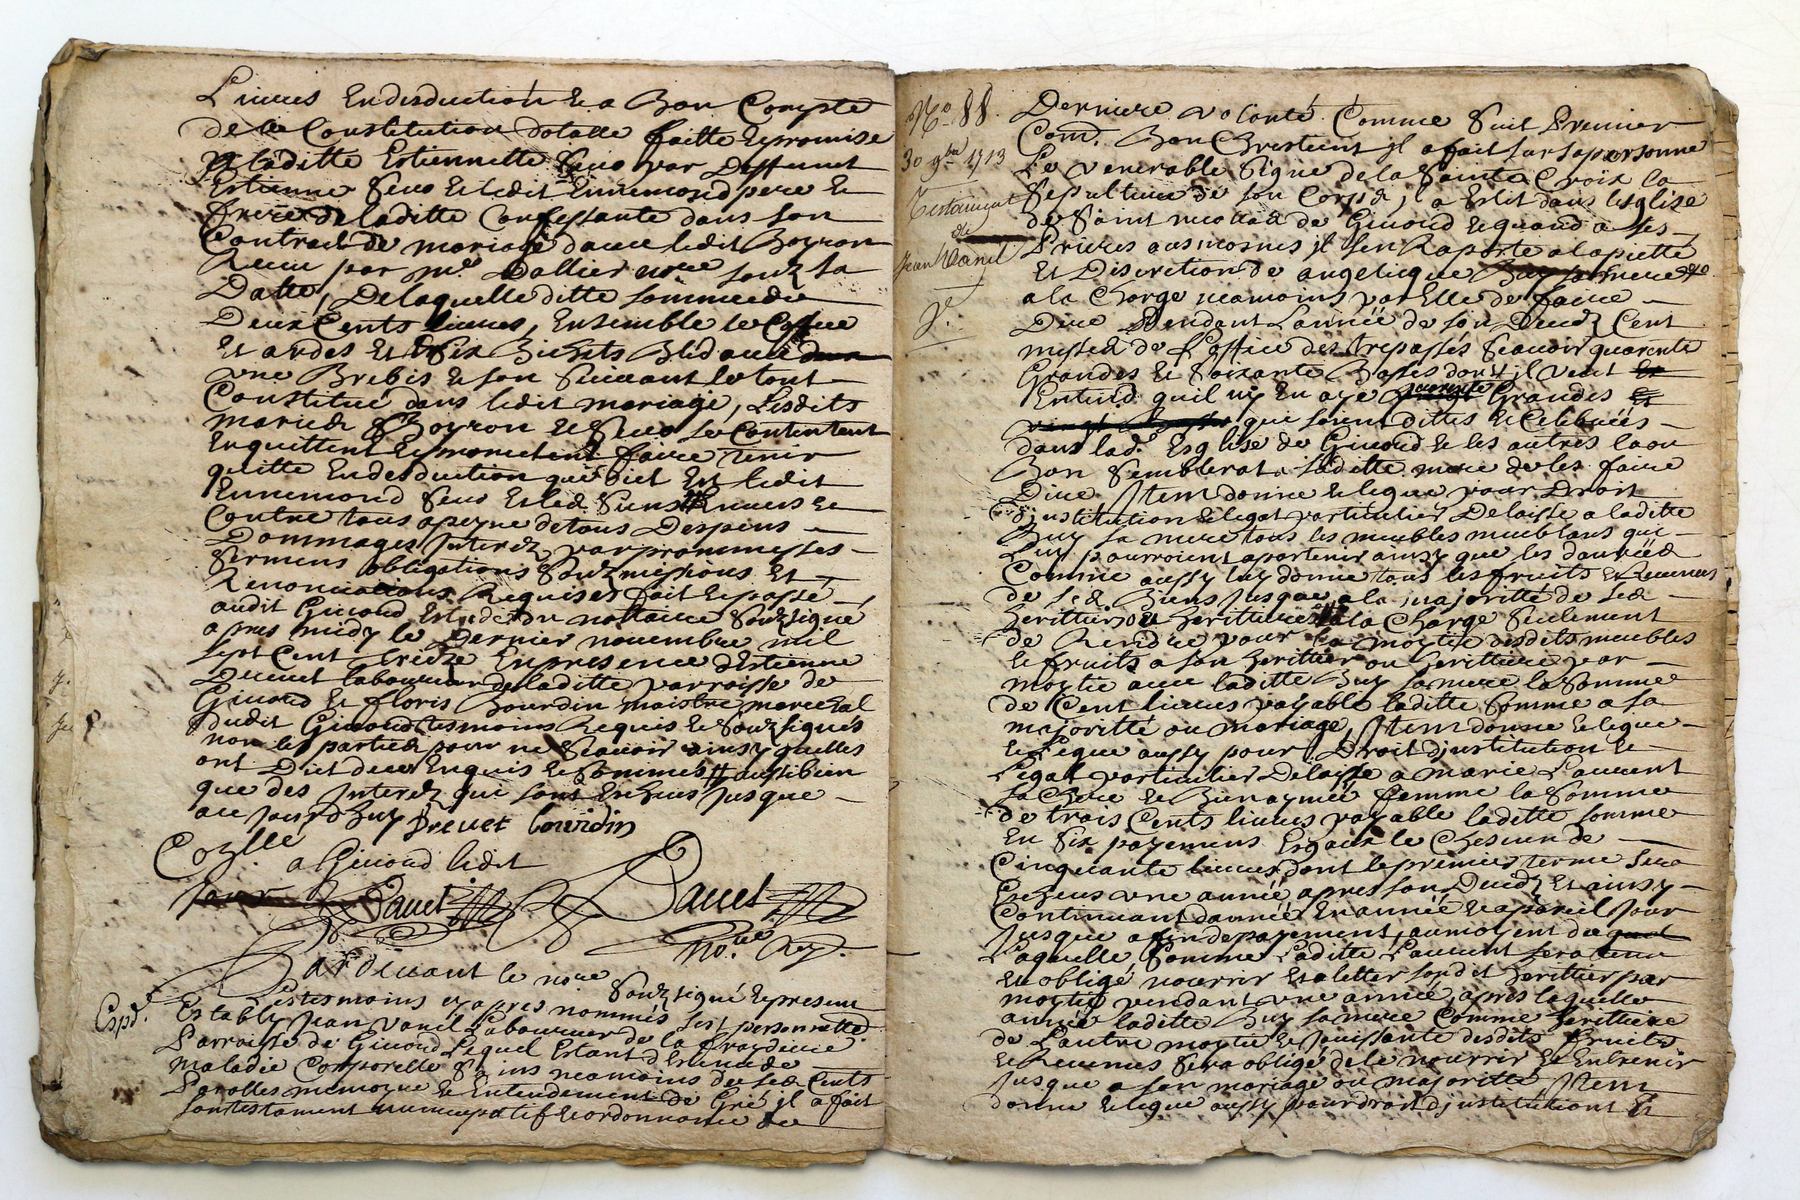 Livres En desduction Et a Bon Compte
de la Constitution dotalle faitte Et promise
a laditte Estiennette par Deffunct
Estienne Et ledit Ennemond pere Et
frere de laditte Confessante dans son
Contract de mariage avec ledit Boyron
Receu par me. Dallier nore souz sa
Datte, De laquelle ditte somme de
Deux Cents livres, Ensemble le Coffre
Et ardes Et Six Bichets Bled avec
une Brebis Et son suivant le tout
Constitué dans ledit mariage, Lesdits
mariez Boyron Et se Contentent
En quittent Et promettent faire tenir
quitte En desduction que dict Est ledit
Ennemond Et les siens Envers Et
Contre tous a peyne de tous Despens
Dommages Interez par prommesses
sermens obligations souzmissions Et
Renonciations Requises fait Et passé
audit Givord Estude du nottaire souzsigné
apres midy le Dernier novembre mil
sept Cent treize En presence d'Estienne
Drevet laboureur de laditte parroisse de
Givord Et floris Bourdin maistre marechal
dudit Givord tesmoins Requis Et souzsignés
non les parties pour ne sçavoir ainsy quelles
ont Dict de ce Enquis Et sommés aussi bien
que des Interez qui sont Escheus jusque
au jourdhuy Drevet bourdin
Coelle
a Givord ledit
jour Davet Davet
No.re Roy.
Pardevant le nore souzsigné Et present
les tesmoins cy apres nommés s'est personnelle.
Expd.
Estably Jean vanel Laboureur de la
Parroisse de Givord Lequel Estant détenu de
maladie Corporelle sains neamoins de ses Cents
Parolles memoyre Et Entendement de Gré il a fait
son testament nuncupatif Et ordonnance de
No. 88.
30 9bre 1713
Testament
de
Jean Vanel
Derniere volonté Comme suit Premier
Comd. Bon Chrestient il a fait sur sa personne
Le venerable signe de la sainte Croix la
sepulture de son Corps il a Eslit dans lesglise
de saint nicollas de Givord Et quand a ses
Prieres aumosnes il sen Raporte a la pietté
Et Discretion de angelique Buy sa mere
a la Charge neamoins par Elle de faire
Dire Pendant Lannée de son Decedz Cent
messes de l'office des trepassés sçavoir quarente
Grandes Et soixante Basses dont il veut
Entend quil ny En aye Grandes Et
que soient dittes Et Celebrées
dans lad. Esglise de Givord Et les autres la ou
Bon semblerat a laditte mere de les faire
Dire Item donne Et legue pour Droit
djnstitution Et legat particulier Delaisse a laditte
Buy sa mere tous les meubles meublans qui
Luy pourroient apartenir ainsy que les danrées
Comme aussy luy donne tous les fruits Et Revenus
de ses Biens jusque a la majoritté de ses
heritier ou heritiere a la Charge seulement
de Rendre pour la moytie desdits meubles
Et fruits a son heritier ou heritiere par
moytie avec laditte Buy sa mere la somme
de Cent livres payable laditte somme a sa
majoritté ou mariage, Item donne Et legue
Et legue aussy pour Droit djnstitution Et
Legat particulier Delaisse a marie Laurent
sa Chere Et Bien aymée femme la somme
de trois Cents livres payable laditte somme
En six payemens Esgaux Et Chescun de
Cinquante livres dont le premier terme sera
Escheus une année apres son Decedz Et ainsy
Continuant dannée En année Et a pareil jour
jusque a fin de payement, au moyent de
Laquelle somme Laditte Laurent sera tenu
Et obligé nourrir Et aletter sondit heritier par
moytie pendant une année, apres laquelle
année laditte Buy sa mere Comme heritiere
de L'autre moytie Et jouissante desdits fruits
Et Revenus sera obligé de le nourrir Et Entrenir
jusque a son mariage ou majoritté, Item
donne Et legue aussy pour droit djnstitutiont Et